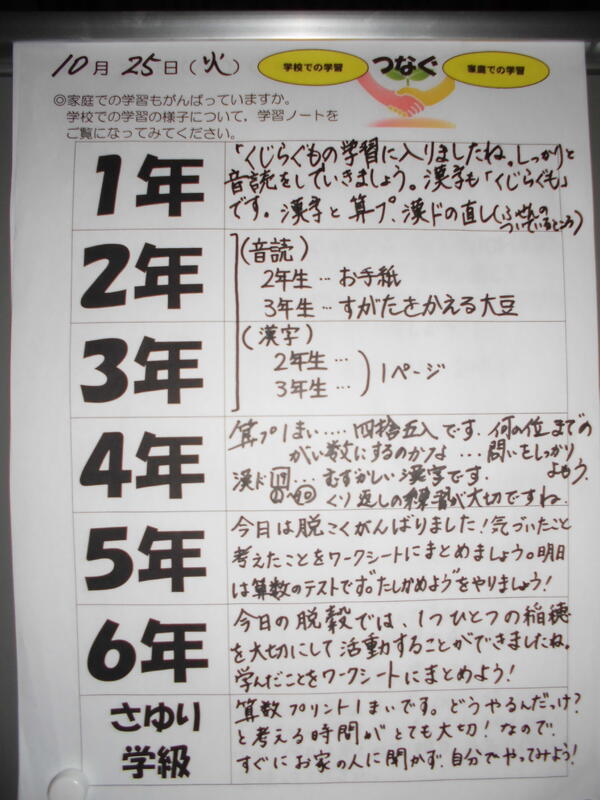 10月25日(火)
学校での学習
つなぐ
家庭での学習
◎家庭での学習もがんばっていますか。
学校での学習の様子について，学習ノートを
ご覧になってみてください。
1年
「くじらぐもの学習に入りましたね。しっかりと
音読をしていきましょう。漢字も「くじらぐも」
です。漢字と算プ、漢ドの直し(ふせんの
ついているところ)
2年
(音読)
2年生…お手紙
3年生…すがたをかえる大豆
3年
(漢字)
2年生…
3年生…
1ページ
4年
算プ1まい‥‥四捨五入です。何の位までの
がい数にするのかな…問いをしっかり
よもう。
漢ド19…むずかしい漢字です。
①〜⑩ くり返しの練習が大切ですね。
5年
今日は脱こくがんばりました!気づいたこと
考えたことをワークシートにまとめましょう。明日
は算数のテストです。"たしかめよう"をやりましょう!
6年
今日の脱穀では、1つひとつの稲穂
を大切にして活動することができましたね。
学んだことをワークシートにまとめよう!
さゆり
学級
算数プリント1まいです。どうやるんだっけ?
と考える時間がとても大切!なので、
すぐにお家の人に聞かず、自分でやってみよう!